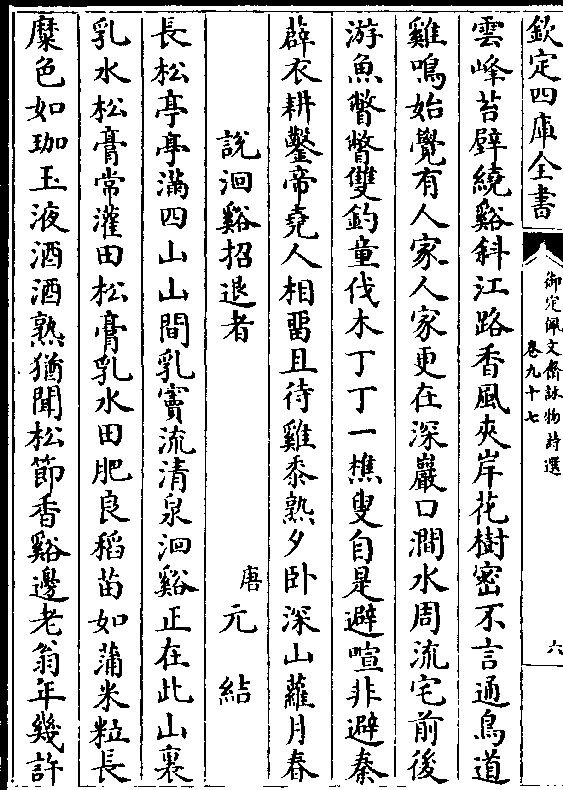 欽定四庫全書
御定佩文齋詠物詩選
卷九十七
六
雲峰苔壁繞谿斜江路香風夾岸花樹密不言通鳥道
雞鳴始覺有人家人家更在深巖口澗水周流宅前後
游魚瞥瞥雙釣童伐木丁丁一樵叟自是避喧非避秦
薜衣耕鑿帝堯人相留且待雞黍熟夕卧深山蘿月春
說洄谿招退者
唐元結
長松亭亭滿四山山間乳竇流清泉洄谿正在此山裏
乳水松膏常灌田松膏乳水田肥良稻苗如蒲米粒長
糜色如珈玉液酒酒熟猶聞松節香谿邊老翁年幾許